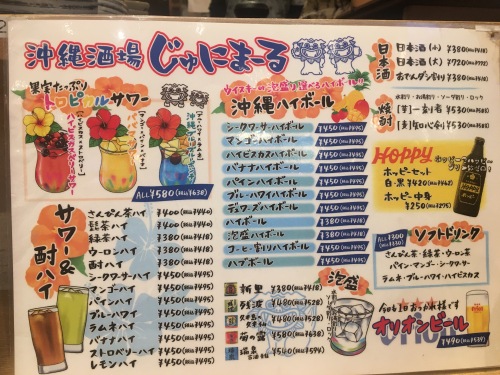 沖縄酒場 じゅにまーる
果実たっぷり
トロピカルサワー
ALL¥580(税込¥638)
ウイスキーか泡盛か選べるハイボール!!
沖縄ハイボール
シークワーサーハイボール ¥450(税込¥495)
マンゴーハイボール ¥450(税込¥495)
ハイビスカスハイボール ¥450(税込¥495)
バナナハイボール ¥450(税込¥495)
パインハイボール ¥450(税込¥495)
ブルーハワイハイボール ¥450(税込¥495)
デュワーズハイボール ¥450(税込¥495)
ハイボール ¥380(税込¥418)
泡盛ハイボール ¥380(税込¥418)
コーヒー割りハイボール ¥450(税込¥495)
ハブボール
日本酒
日本酒(小) ¥380(税込¥418)
日本酒(大) ¥720(税込¥792)
おでんダシ割り ¥380(税込¥418)
焼酎
水割り・お湯割り・ソーダ割り・ロック
【芋】一刻者 ¥530(税込¥583)
【麦】知心剣 ¥530(税込¥583)
HOPPY
ホッピーセット
白・黒 ¥420(税込¥462)
ホッピー中身
¥250(税込¥275)
サワー&酎ハイ
さんぴん茶ハイ ¥400(税込¥440)
緑茶ハイ ¥380(税込¥418)
ウーロンハイ ¥380(税込¥418)
酎ハイ ¥380(税込¥418)
シークワーサーハイ ¥450(税込¥495)
マンゴーハイ ¥450(税込¥495)
パインハイ ¥450(税込¥495)
ブルーハワイ ¥450(税込¥495)
ラムネハイ ¥450(税込¥495)
バナナハイ ¥450(税込¥495)
ストロベリーハイ ¥450(税込¥495)
レモンハイ ¥450(税込¥495)
泡盛
新里 ¥380(税込¥418)
残波 ¥480(税込¥528)
¥480(税込¥528)
菊の露 ¥580(税込¥638)
瑞泉 ¥540(税込¥594)
ソフトドリンク
ALL¥300(税込¥330)
さんぴん茶・緑茶・ウーロン茶
パイン・マンゴー・シークワーサー
ラムネ・ブルーハワイ・ハイビスカス
今日も1日お疲れ様です
オリオンビール
¥490(税込¥539)